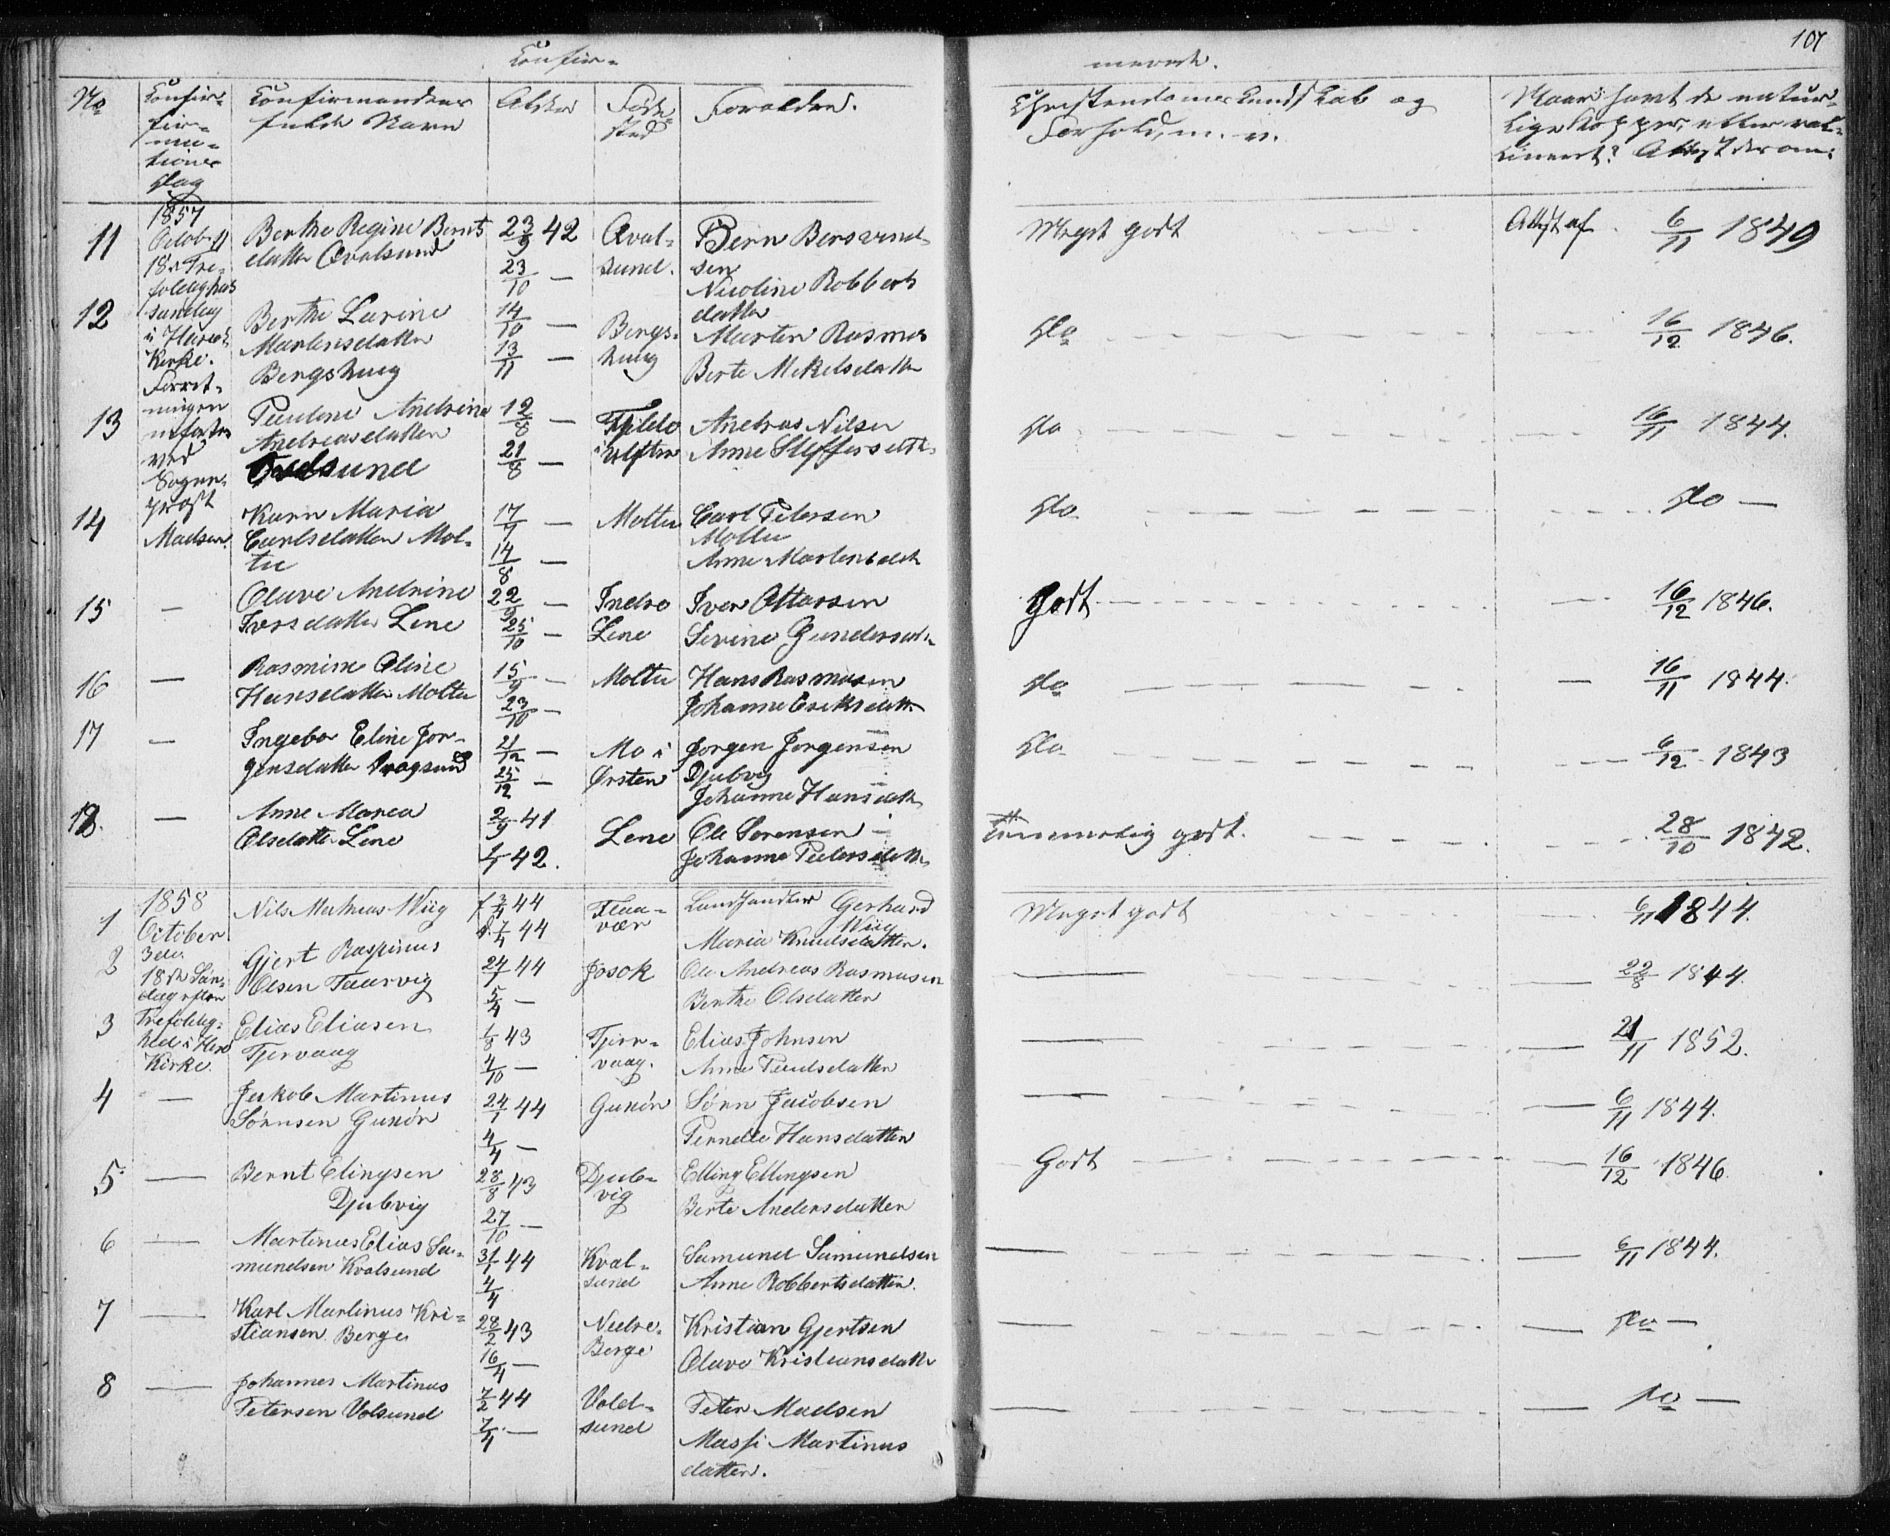 107
Confir-
merede.
No
Confir-
mations
Dag
Confirmandens
fulde Navn
Alder
Føde-
sted
Forældre.
Christendomskundskab og
Forhold, m. v.
Naar havt de natur-
lige Kopper, eller vac-
cineret? Attest derom.
1857
October
18
Søndag
i Herøe
Kirke.
Forret-
ningen
ved
Sogne-
prest
Madsen.
11 Berthe Regine Bernts
datter Qvalsund
23/9 42
23/10 —
Qval-
sund.
Bern Bersvend-
sen
Nicoline Robberts
datter
Meget godt
Attest af 6/11 1849
12 Berthe Larine
Martensdatter
Bergshaug
14/10 —
13/11 —
Bergs-
haug
Marten Rasmus
Berte Mikelsdatter
do
16/12 1846.
13 Pauline Andrine
Andreasdatter
12/8 —
21/8 —
Andreas Nilsen
Anne Steffensdtr
do
16/11 1844.
14 Karn Maria
Carlsdatter Mol-
tu
17/7 —
14/8 —
Moltu
Carl Petersen
Moltu
Anne Martensdtr
do
do —
15 — Olave Andrine
Iversdatter Lene
22/9 —
25/10 —
Indre
Lene
Iver Ottarsen
Sevine Gundersdtr
Godt
16/12 1846.
16 — Rasmine Oline
Hansdatter Moltu
15/9 —
23/10 —
Moltu
Hans Rasmusen
Johanne Eriksdatter
do
16/11 1844.
17 — Ingebor Eline Jør-
gensdatter Dragsund
21/12 —
25/12 —
Mo i
Ørsten
Jørgen Jørgensen
Djubvig
Johanne Hansdatter
do
6/12 1843
18. — Anne Marea
Olsdatter Lene
2/9 41
1/1 42.
Lene
Ole Sørensen
Johanne Pedersdatter
Temmelig godt.
28/10 1842.
1858
October
3die
18de Søn-
dag efter
Trefoldig-
hed i Herø
Kirke.
1 Nils Mathias Wiig
44
44
Flaa-
vær
Landhandler Gerhard
Wiig
Maria Knudsdatter.
Meget godt
6/11 1844.
2 Gjert Raspinus
Olsen Taarvig
24/1 44
5/4 —
Jøsok
Ole Andreas Rasmusen
Berthe Olsdatter
22/8 1844.
3 Elias Eliasen
Tjervaag
1/8 43
4/10 —
Tjør-
vaag.
Elias Johnsen
Anne Paulsdatter
21/11 1852.
4 — Jakob Martinus
Sørnsen Gurskøn
24/1 44
4/4 —
Sørn Jacobsen
Pernelle Hansdatter
6/11 1844.
5 — Bernt Elingsen
Djubvig
28/8 43
27/10 —
Djub-
vig
Elling Ellingsen
Berte Andersdatter
Godt
16/12 1846.
6 — Martinus Elias Sa-
mundsen Kvalsund
31/1 44
4/4
Kval-
sund
Samund Samundsen
Anne Robbertsdatter.
6/11 1844.
7 — Karl Martinus Kri-
stiansen Berge
28/2 43
16/4 —
Nedre-
Berge
Kristian Gjertsen
Olave Kristiansdatter
do —
8 — Johannes Martinus
Petersen Volsund
7/2 44
7/4 —
Vold-
sund
Peter Madsen
Massi Martinus
datter.
do —